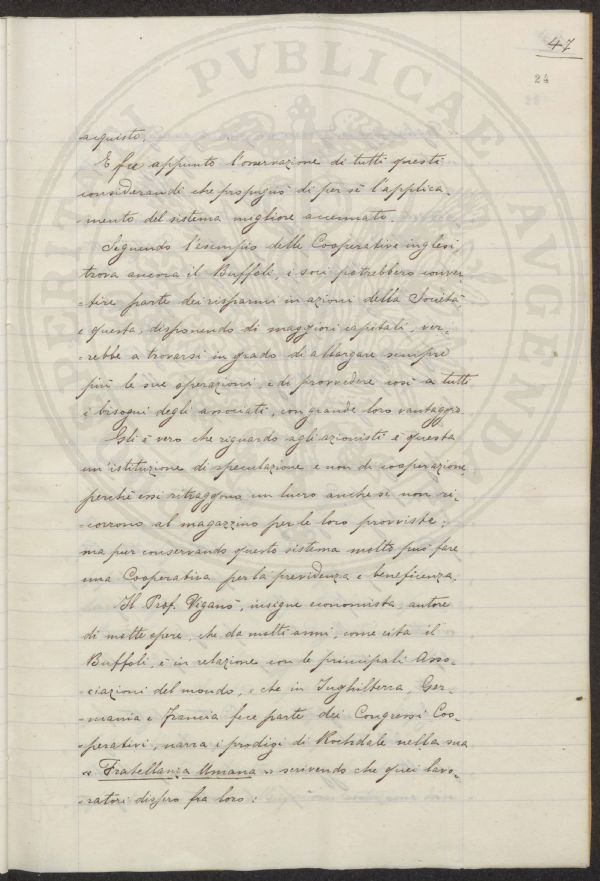 47
24
acquisto.
E fu appunto l'osservazione di tutti questi
considerandi che propugnò di per sè l'applica-
-mento del sistema migliore accennato.
Seguendo l'esempio delle Cooperative inglesi,
trova ancora il Buffoli, i soci potrebbero conver-
-tire parte dei risparmi in azioni della Società
e questa, disponendo di maggiori capitali, ver-
-rebbe a trovarsi in grado di allargare sempre
più le sue operazioni, e di provvedere così a tutti
i bisogni degli associati, con grande loro vantaggio.
Egli è vero che riguardo agli azionisti è questa
un'istituzione di speculazione e non di cooperazione,
perchè essi ritraggono un lucro anche se non ri-
-corrono al magazzino per le loro provviste;
ma pur conservando questo sistema molto può fare
una Cooperativa per la previdenza e beneficenza.
Il Prof. Viganò, insigne economista, autore
di molte opere, che da molti anni, come cita il
Buffoli, è in relazione con le principali Asso-
-ciazioni del mondo, e che in Inghilterra, Ger-
-mania e Francia fece parte dei Congressi Coo-
-perativi, narra i prodigi di Rochdale nella sua
"Fratellanza Umana" scrivendo che quei lavo-
-ratori dissero fra loro:
PVBLICAE
AVGENDA